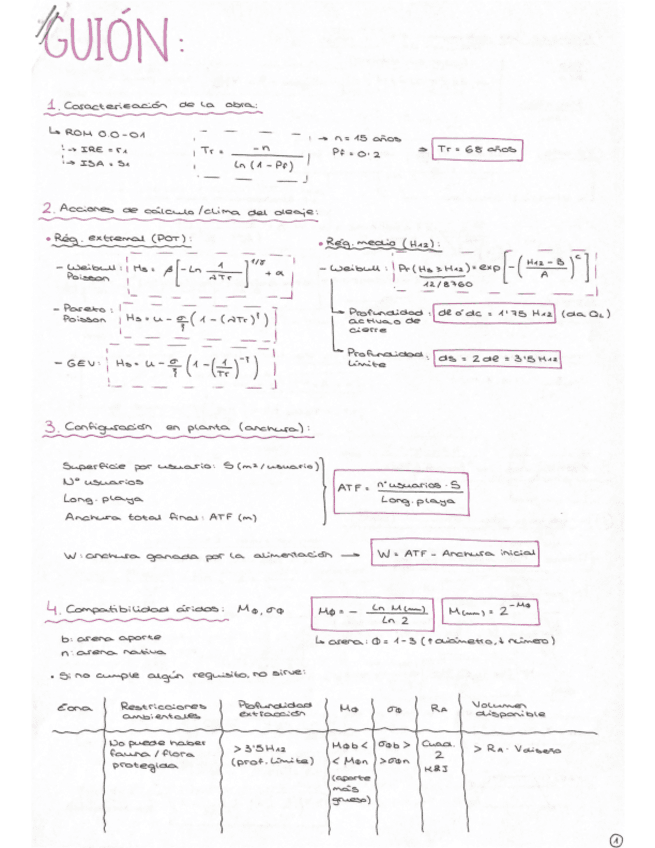 GUIÓN:
1. Caracterización de la obra:
↳ ROM 0.0-01
→ IRE = r1
→ ISA = S1
Tr = -n / Ln (1 - Pf)
→ n = 15 años
Pf = 0.2
⇒ Tr = 68 años
2. Acciones de cálculo/clima del oleaje:
• Rég. extremal (POT):
- Weibull Poisson: Hs = β [-Ln 1/λTr]^1/γ + α
- Pareto Poisson: Hs = u - σ/ξ (1 - (λTr)^ξ)
- GEV: Hs = u - σ/ξ (1 - (1/Tr)^-ξ)
• Rég. medio (H12):
- Weibull: Pr (Hs ≥ H12) = exp [-((H12 - B)/A)^C]
12/8760
Profundidad activa o de cierre: dl ó dc = 1'75 H12 (da OL)
Profundidad Límite: ds = 2dl = 3'5 H12
3. Configuración en planta (anchura):
Superficie por usuario: S (m²/usuario)
Nº usuarios
Long. playa
Anchura total final: ATF (m)
ATF = nº usuarios · S / Long. playa
W: anchura ganada por la alimentación → W = ATF - Anchura inicial
4. Compatibilidad áridos: MΦ, σΦ
MΦ = - Ln M(mm) / Ln 2
M(mm) = 2^-MΦ
b: arena aporte
n: arena nativa
↳ arena: Φ = 1-3 (↑diámetro, ↓número)
• Si no cumple algún requisito, no sirve:
Zona
Restricciones ambientales
Profundidad extracción
MΦ
σΦ
RA
Volumen disponible
No puede haber fauna/flora protegida
> 3'5 H12 (prof. Límite)
MΦb < < MΦn (aporte más grueso)
σΦb > > σΦn
Cuad. 2
K&J
> RA · Vdiseño
1